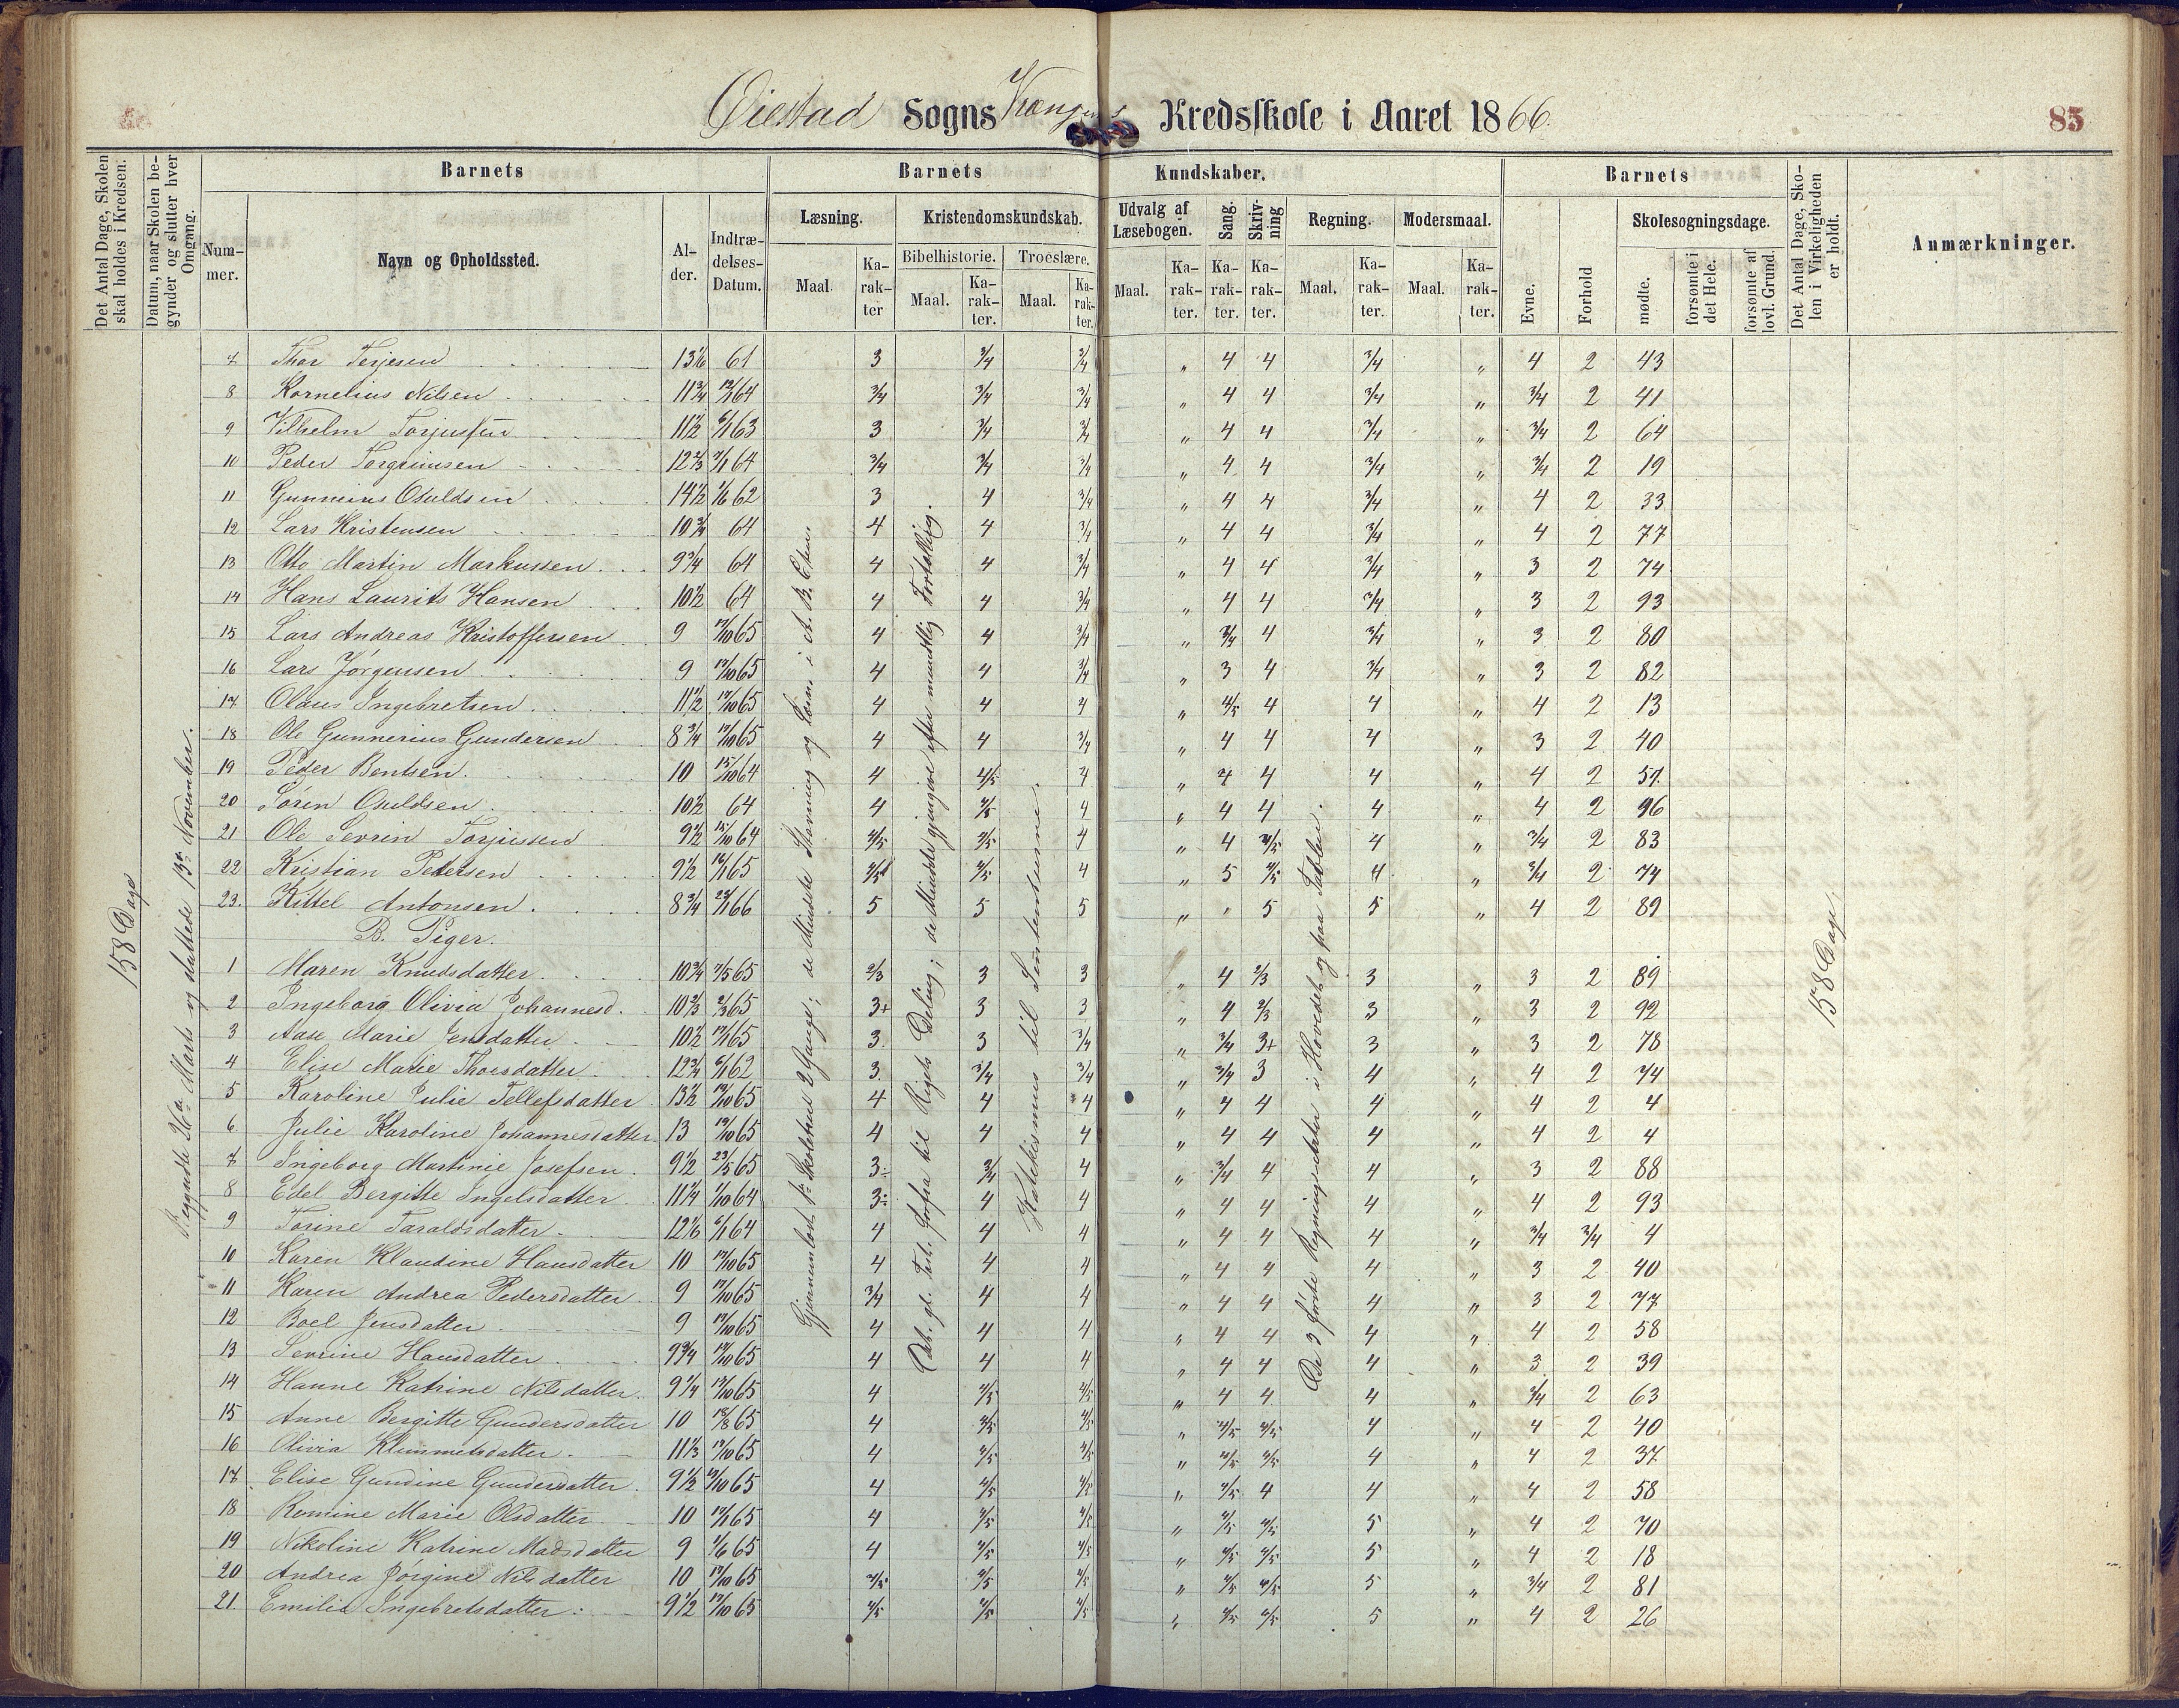 Øiestad Sogns Kredsskole i Aaret 1866. 85
Det Antal Dage, Skolen skal holdes i Kredsen.
Datum, naar Skolen begynder og slutter hver Omgang.
Barnets
Barnets Kundskaber.
Barnets
Det Antal Dage, Skolen i Virkeligheden er holdt.
Anmærkninger.
Nummer.
Navn og Opholdssted.
Alder.
Indtrædelses-Datum.
Læsning.
Kristendomskundskab.
Udvalg af Læsebogen.
Sang.
Skrivning
Regning.
Modersmaal.
Evne.
Forhold
Skolesøgningsdage.
Bibelhistorie.
Troeslære.
Maal.
Karakter
Maal.
Karakter.
Maal.
Karakter.
Maal.
Karakter.
Karakter.
Karakter.
Maal.
Karakter.
Maal.
Karakter.
mødte.
forsømte i det Hele.
forsømte af lovl. Grund.
158 Dage
Begyndte 26de Marts og sluttede 13de November.
Gjennemlæst 1ste Skoletrin 2 Gange; de Mindste Stavning og Læsn. i A. B. C'en.
Det gl. Test. forfra til Rigets Deling; de Mindste gjengive efter mundtlig Fortælling.
Katekismus til Sententserne.
De 3 første Regningsarter i Hovedet og paa Tavlen.
158 Dage
7 Thor Terjesen 13 1/6 61 3 3/4 3/4 " 4 4 3/4 " 4 2 43
8 Kornelius Nilsen 11 3/4 12/1 64 3/4 3/4 3/4 " 4 4 3/4 " 3/4 2 41
9 Vilhelm Torjussen 11 1/2 6/1 63 3 3/4 3/4 " 4 4 3/4 " 3/4 2 64
10 Peder Torgrimsen 12 2/3 7/1 64 3/4 3/4 3/4 " 4 4 3/4 " 3/4 2 19
11 Gunnerius Osuldsen 14 1/2 1/6 62 3 4 3/4 " 4 4 3/4 " 4 2 33
12 Lars Kristensen 10 3/4 64 4 4 3/4 " 4 4 3/4 " 4 2 77
13 Otto Martin Markussen 9 3/4 64 4 4 3/4 " 4 4 3/4 " 3 2 74
14 Hans Laurits Hansen 10 1/2 64 4 4 3/4 " 4 4 3/4 " 3 2 93
15 Lars Andreas Kristoffersen 9 17/10 65 4 4 3/4 " 3/4 4 3/4 " 3 2 80
16 Lars Jørgensen 9 17/10 65 4 4 3/4 " 3 4 3/4 " 3 2 82
17 Olaus Ingebretsen 11 1/2 17/10 65 4 4 4 " 4/5 4 4 " 4 2 13
18 Ole Gunnerius Gundersen 8 3/4 17/10 65 4 4 3/4 " 4 4 4 " 3 2 40
19 Peder Bentsen 10 15/10 64 4 4/5 4 " 4 4 4 " 4 2 57
20 Søren Osuldsen 10 1/2 64 4 4/5 4 " 4 4 4 " 4 2 96
21 Ole Severin Torjussen 9 1/2 15/10 64 4/5 4/5 4 " 4 4/5 4 " 3/4 2 83
22 Kristian Pedersen 9 1/2 16/1 65 4/5 4/5 4 " 5 4/5 4 " 3/4 2 74
23. Kittel Antonsen 8 3/4 23/1 66 5 5 5 " " 5 5 " 4 2 89
B. Piger.
1 Maren Knudsdatter 10 3/4 7/5 65 2/3 3 3 " 4 2/3 3 " 3 2 89
2 Ingeborg Olivia Johannesd. 10 2/3 2/3 65 3+ 3 3 " 4 2/3 3 " 3 2 92
3 Aase Marie Jensdatter 10 1/2 17/1 65 3 3 3/4 " 3/4 3+ 3 " 3 2 78
4 Elise Marie Thorsdatter 12 3/4 6/1 62 3 3/4 3/4 " 3/4 3 4 " 4 2 74
5 Karoline Julie Tellefsdatter 13 1/2 19/10 65 4 4 4 " 4 4 4 " 4 2 4
6 Julie Karoline Johannesdatter 13 19/10 65 4 4 4 " 4 4 4 " 4 2 4
7 Ingeborg Martinie Josefsen 9 1/2 23/5 65 3÷ 3/4 4 " 3/4 4 4 " 3 2 88
8 Edel Bergitte Ingelsdatter 11 1/4 1/10 64 3÷ 4 4 " 4 4 4 " 4 2 93
9 Torine Taraldsdatter 12 1/6 6/1 64 4 4 4 " 4 4 4 " 3/4 3/4 4
10 Karen Klaudine Hansdatter 10 17/10 65 4 4 4 " 4 4 4 " 3 2 40
11 Karen Andrea Pedersdatter 9 17/10 65 3/4 4 4 " 4 4 4 " 3 2 77
12 Boel Jensdatter 9 17/10 65 4 4 4 " 4 4 4 " 4 2 58
13 Severine Hansdatter 9 3/4 17/10 65 4 4 4 " 4 4 4 " 3 2 39
14 Hanne Katrine Nilsdatter 9 1/4 17/10 65 4 4/5 4/5 " 4 4 4 " 3/4 2 63
15 Anne Bergitte Gundersdatter 10 18/8 65 4 4/5 4/5 " 4/5 4/5 4 " 4 2 40
16 Olivia Klemmetsdatter 11 1/3 17/10 65 4 4/5 4/5 " 4/5 4/5 4 " 4 2 37
17 Elise Gundine Gundersdatter 9 1/2 17/10 65 4 4/5 4/5 " 4/5 4 4 " 4 2 58
18 Romine Marie Olsdatter 10 17/1 65 4 4/5 4/5 " 4/5 4/5 5 " 4 2 70
19 Nikoline Katrine Madsdatter 9 1/6 65 4 4/5 4/5 " 4/5 4/5 5 " 4 2 18
20 Andrea Jørgine Nilsdatter 10 17/10 65 4/5 4/5 4/5 " 4/5 4/5 5 " 3/4 2 81
21 Emilie Ingebretsdatter 9 1/2 17/10 65 4/5 4/5 4/5 " 4/5 4/5 5 " 4 2 26